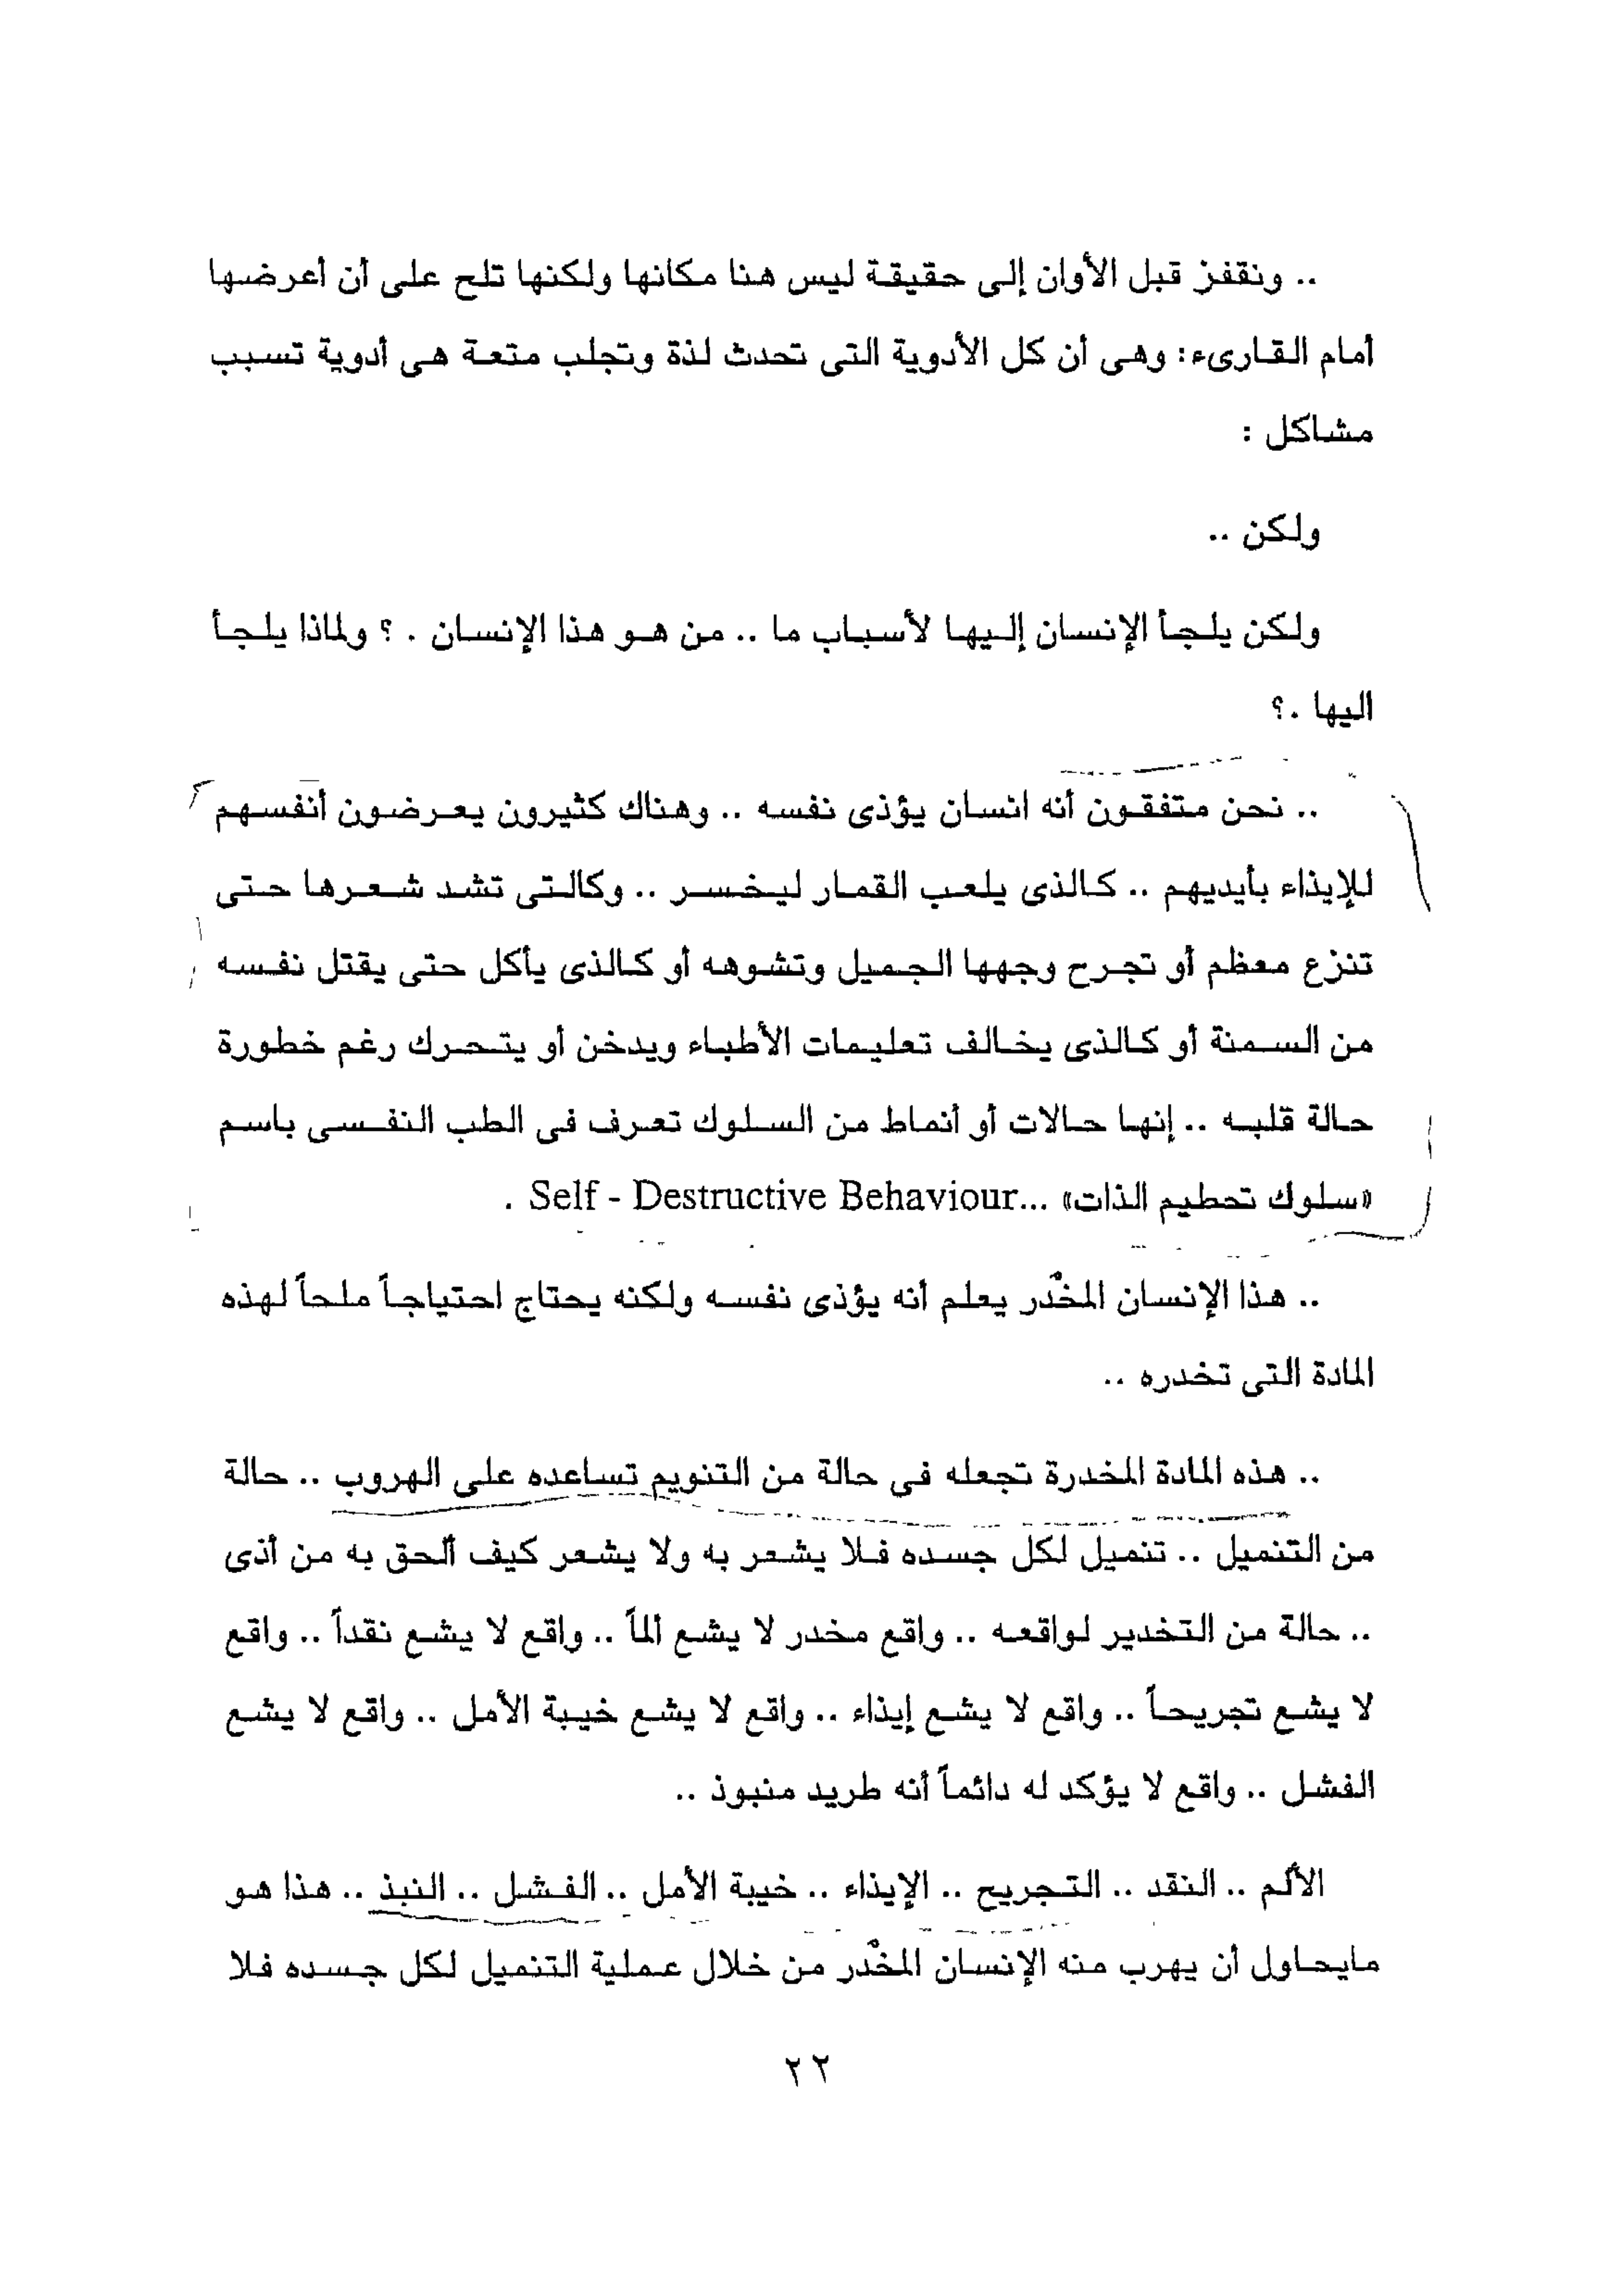 .. ونقفز قبل الأوان إلى حقيقة ليس هنا مكانها ولكنها تلح على أن أعرضها
أمام القارىء: وهى أن كل الأدوية التى تحدث لذة وتجلب متعة هى أدوية تسبب
مشاكل :
ولكن ..
ولكن يلجأ الإنسان إليها لأسباب ما .. من هو هذا الإنسان . ؟ ولماذا يلجأ
اليها .؟
.. نحن متفقون أنه انسان يؤذى نفسه .. وهناك كثيرون يعرضون أنفسهم
للإيذاء بأيديهم .. كالذى يلعب القمار ليخسر .. وكالتى تشد شعرها حتى
تنزع معظم أو تجرح وجهها الجميل وتشوهه أو كالذى يأكل حتى يقتل نفسه
من السمنة أو كالذى يخالف تعليمات الأطباء ويدخن أو يتحرك رغم خطورة
حالة قلبه .. إنها حالات أو أنماط من السلوك تعرف فى الطب النفسى باسم
«سلوك تحطيم الذات» ...Self - Destructive Behaviour .
.. هذا الإنسان المخّدر يعلم أنه يؤذى نفسه ولكنه يحتاج احتياجاً ملحاً لهذه
المادة التى تخدره ..
.. هذه المادة المخدرة تجعله فى حالة من التنويم تساعده على الهروب .. حالة
من التنميل .. تنميل لكل جسده فلا يشعر به ولا يشعر كيف ألحق به من أذى
.. حالة من التخدير لواقعه .. واقع مخدر لا يشع ألماً .. واقع لا يشع نقداً .. واقع
لا يشع تجريحاً .. واقع لا يشع إيذاء .. واقع لا يشع خيبة الأمل .. واقع لا يشع
الفشل .. واقع لا يؤكد له دائماً أنه طريد منبوذ ..
الألم .. النقد .. التجريح .. الإيذاء .. خيبة الأمل .. الفشل .. النبذ .. هذا هو
مايحاول أن يهرب منه الإنسان المخّدر من خلال عملية التنميل لكل جسده فلا
٢٢